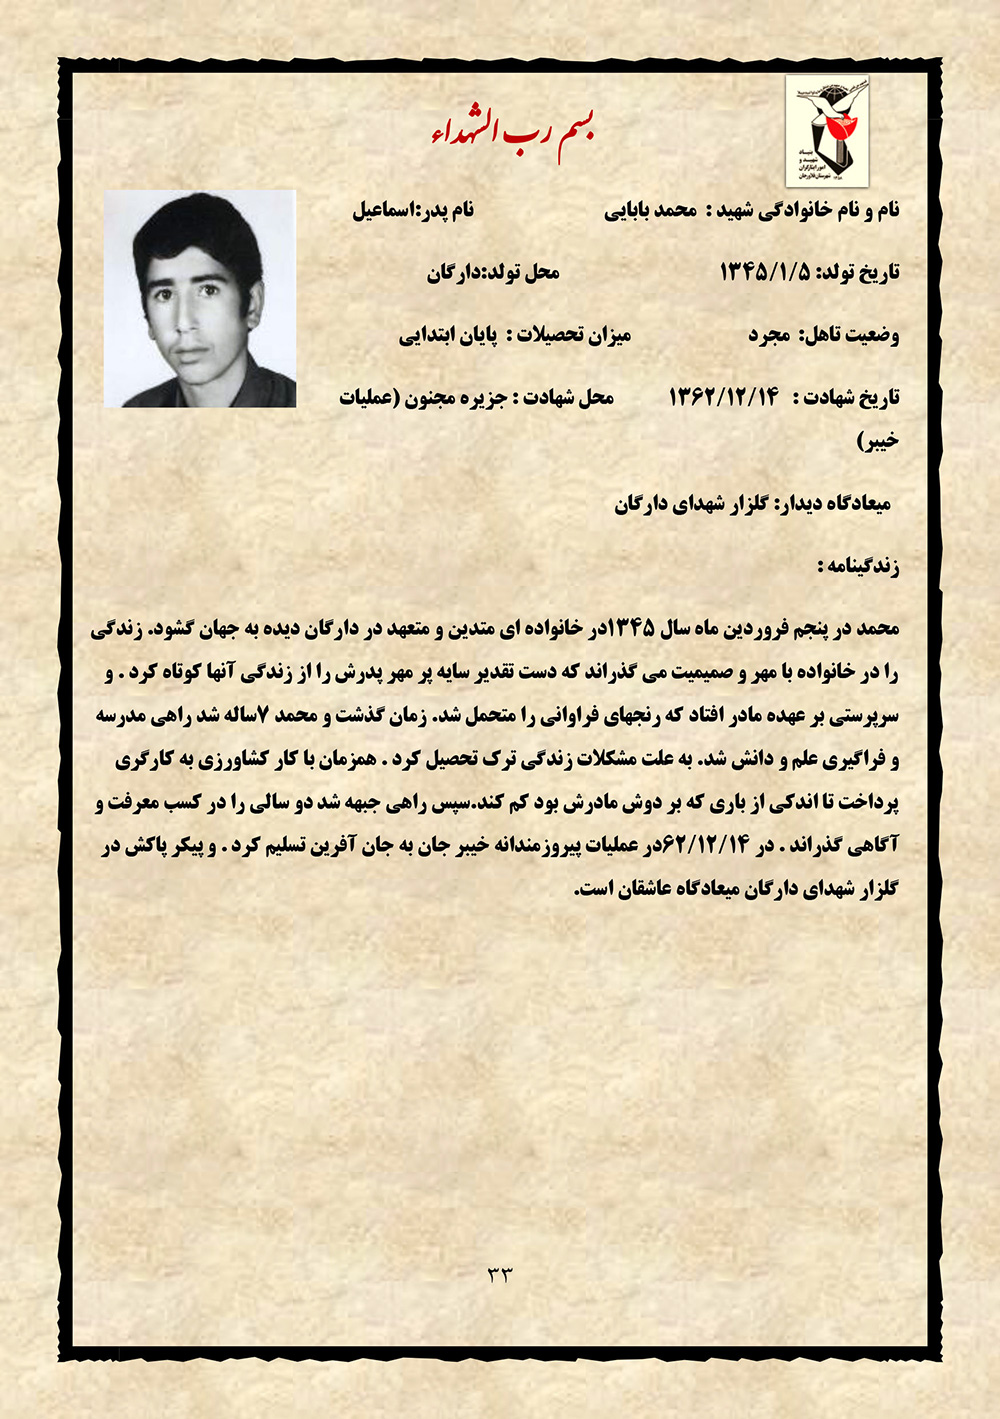 بسم رب الشهداء
بنیاد
شهید و
امور ایثارگران
شهرستان فلاورجان
نام و نام خانوادگی شهید : محمد بابایی نام پدر:اسماعیل
تاریخ تولد: ۱۳۴۵/۱/۵ محل تولد:دارگان
وضعیت تاهل: مجرد میزان تحصیلات : پایان ابتدایی
تاریخ شهادت : ۱۳۶۲/۱۲/۱۴ محل شهادت : جزیره مجنون (عملیات
خیبر)
میعادگاه دیدار: گلزار شهدای دارگان
زندگینامه :
محمد در پنجم فروردین ماه سال ۱۳۴۵در خانواده ای متدین و متعهد در دارگان دیده به جهان گشود. زندگی
را در خانواده با مهر و صمیمیت می گذراند که دست تقدیر سایه پر مهر پدرش را از زندگی آنها کوتاه کرد . و
سرپرستی بر عهده مادر افتاد که رنجهای فراوانی را متحمل شد. زمان گذشت و محمد ۷ساله شد راهی مدرسه
و فراگیری علم و دانش شد. به علت مشکلات زندگی ترک تحصیل کرد . همزمان با کار کشاورزی به کارگری
پرداخت تا اندکی از باری که بر دوش مادرش بود کم کند.سپس راهی جبهه شد دو سالی را در کسب معرفت و
آگاهی گذراند . در ۶۲/۱۲/۱۴در عملیات پیروزمندانه خیبر جان به جان آفرین تسلیم کرد . و پیکر پاکش در
گلزار شهدای دارگان میعادگاه عاشقان است.
۳۳